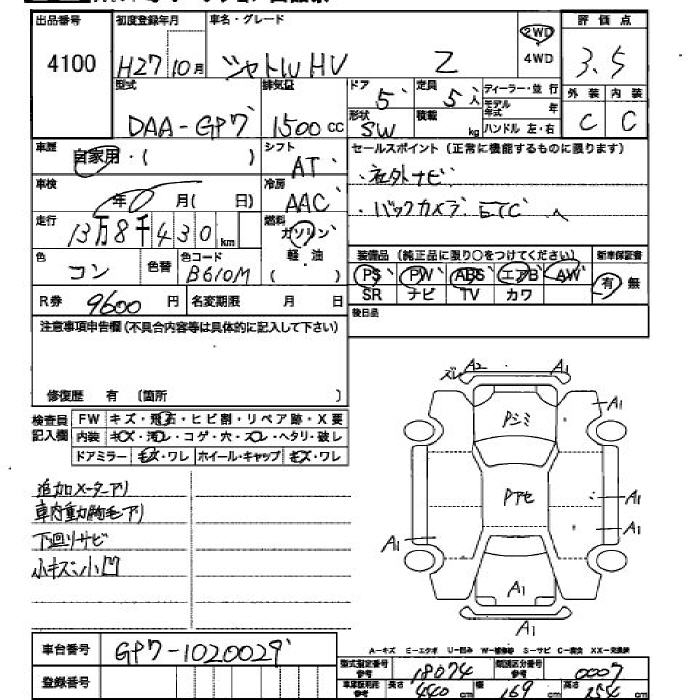 出品番号 初度登録年月 車名・グレード 評価点
4100 H27 10月 シャトル HV Z 2WD 4WD 3.5
型式 排気量 ドア 定員 ディーラー・並行 外装 内装
DAA-GP7 1500cc 5 5人 モデル年式 年 C C
形状 SW 積載 kg ハンドル 左・右
車歴 自家用・( ) シフト AT セールスポイント(正常に機能するものに限ります)
車検 年0月( 日) 冷房 AAC ・社外ナビ
走行 13万8千430km 燃料 ガソリン ・バックカメラ ETC
色 コン 色替 色コード B610M 軽油 ( ) 装備品(純正品に限り○をつけてください) 新車保証書
PS PW ABS エアB AW 有 無
R券 9600円 名変期限 月 日 SR ナビ TV カワ
注意事項申告欄(不具合内容等は具体的に記入して下さい) 後日品
修復歴 有 〔箇所 〕
検査員記入欄 FW キズ・飛石・ヒビ割・リペア跡・X要
内装 キズ・汚レ・コゲ・穴・スレ・ヘタリ・破レ
ドアミラー キズ・ワレ ホイール・キャップ キズ・ワレ
ズレ A2 A1
A1
Pシミ
Pアセ
A1
A1
A1
A1
A1
追加メーターアリ
車内動物毛アリ
下廻りサビ
小キズ小凹
A-キズ E-エクボ U-凹み W-補修跡 S-サビ C-腐食 XX-交換済
車台番号 GP7-1020029
型式指定番号 参考 18074 類別区分番号 参考 0007
登録番号
長さ 440cm 幅 169cm 高さ 154cm